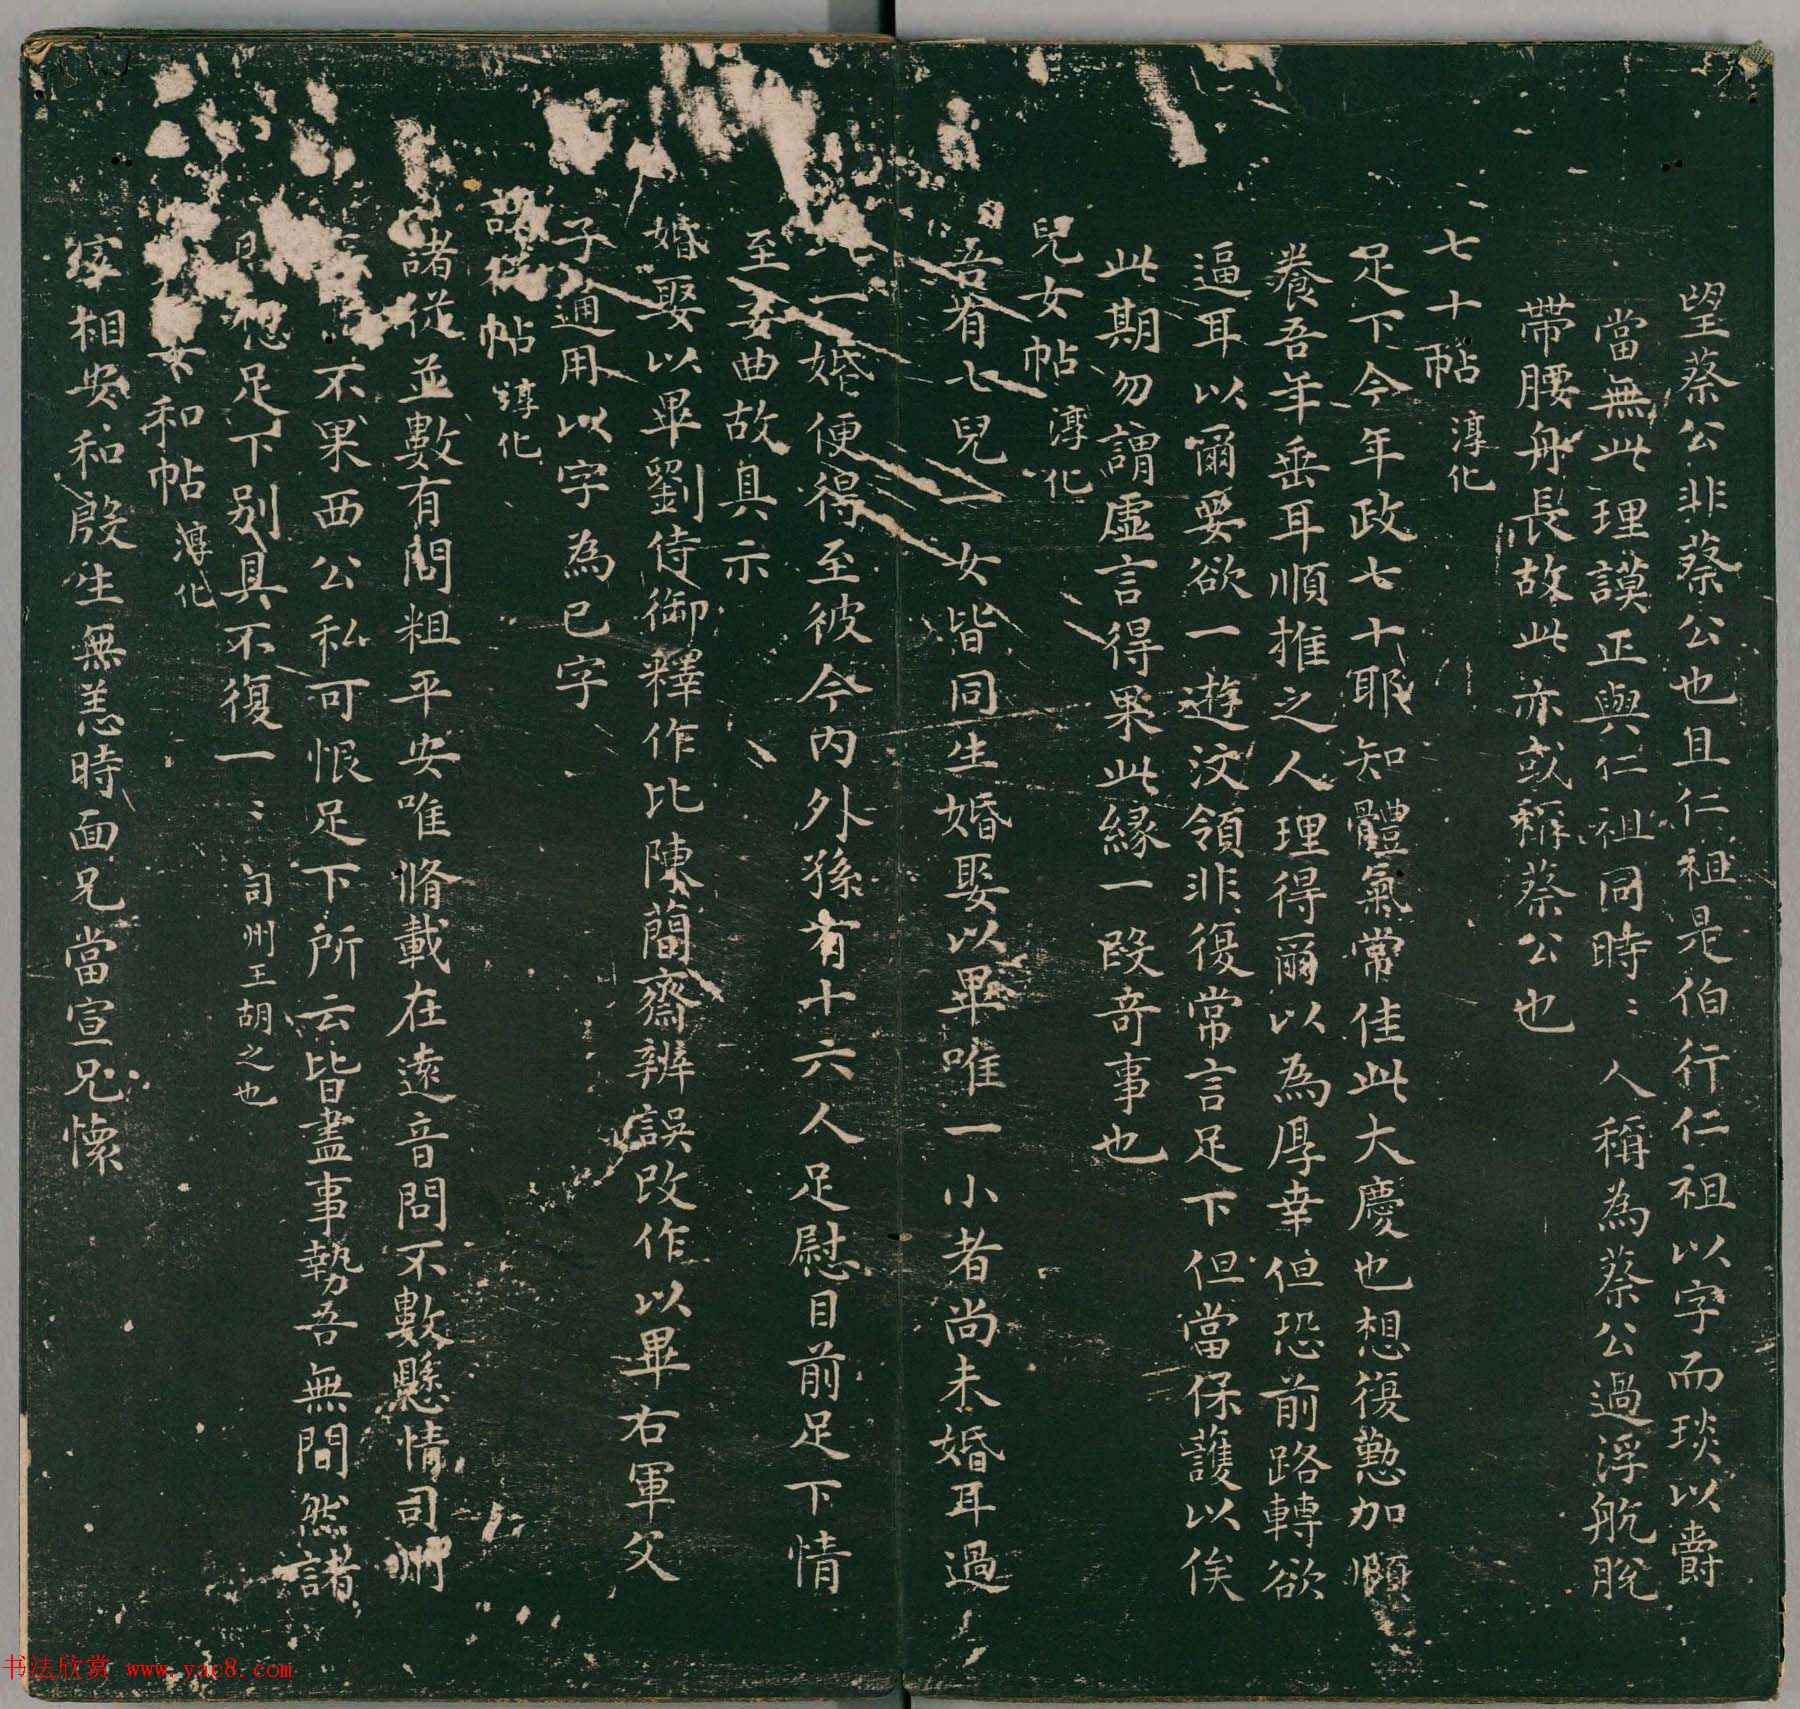 望蔡公非蔡公也且仁祖是伯行仁祖以字而琰以爵
當無此理謨正與仁祖同時〻人稱為蔡公過浮航脫
帶腰舟長故此亦或稱蔡公也
七十帖 淳化
足下今年政七十耶知體氣常佳此大慶也想復懃加頤
養吾年垂耳順推之人理得爾以為厚幸但恐前路轉欲
逼耳以爾要欲一遊汶領非復常言足下但當保護以俟
此期勿謂虛言得果此緣一段奇事也
兒女帖 淳化
吾有七兒一女皆同生婚娶以畢唯一小者尚未婚耳過
此一婚便得至彼今內外孫有十六人足慰目前足下情
至委曲故具示
婚娶以畢劉侍御釋作比陳蘭齋辨誤改作以畢右軍父
子通用以字為已字
諸從帖 淳化
諸從並數有問粗平安唯脩載在遠音問不數懸情司州
不果西公私可恨足下所云皆盡事勢吾無間然諸
問想足下別具不復一〻 司州王胡之也
女和帖 淳化
家相安和殷生無恙時面兄當宣兄懷
书法欣赏 www.yac8.com